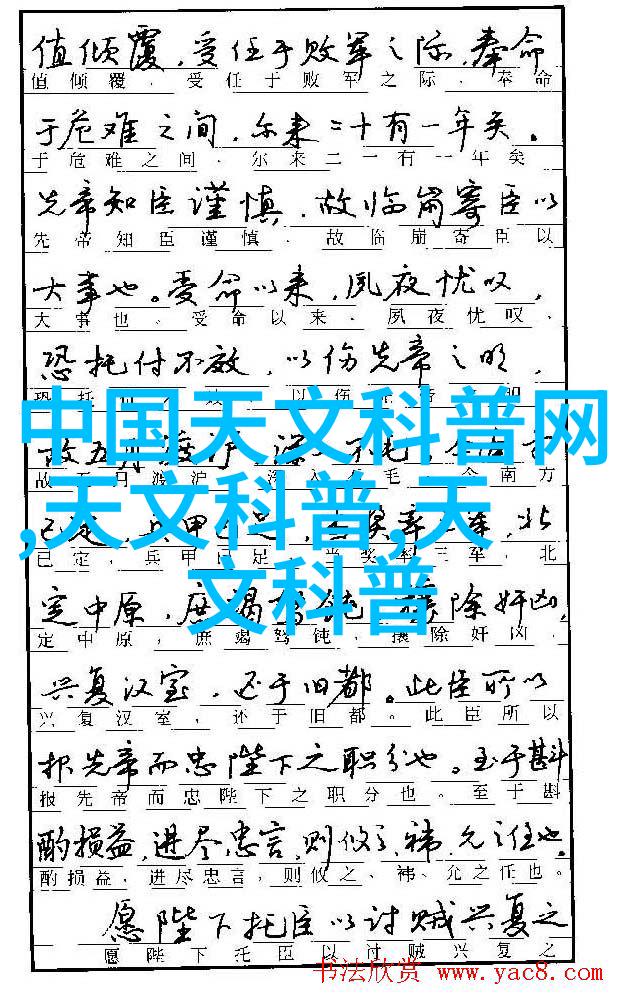 值倾覆，受任于败军之际，奉命
值倾覆，受任于败军之际，奉命
于危难之间，尔来二十有一年矣。
于危难之间，尔来二一有一年矣
先帝知臣谨慎，故临崩寄臣以
先帝知臣谨慎，故临崩寄臣以
大事也。受命以来，夙夜忧叹，
大事也。受命以来，夙夜忧叹，
恐托付不效，以伤先帝之明，
恐托付不效，以伤先帝之明
中国天文科普网
故五月渡泸，深入不毛，今南方
故五月渡泸，深入不毛，今南方
,天文科普,天
已定，兵甲已足，当奖率三军，北
已定，兵甲已足，当奖率三军，北
文科普
定中原，庶竭驽钝，攘除奸凶，
定中原，庶竭驽钝，攘除奸凶，
兴复汉室，还于旧都。此臣所以
兴复汉室，还于旧都。此臣所以
报先帝而忠陛下之职分也。至于斟
报先帝而忠陛下之职分也。至于斟
酌损益，进尽忠言，则攸之、祎、允之任也。
酌损益，进尽忠言，则攸之、祎、允之任也。
愿陛下托臣以讨贼兴复之
愿陛下托臣以讨贼兴复之
书法欣赏 www.yac8.com